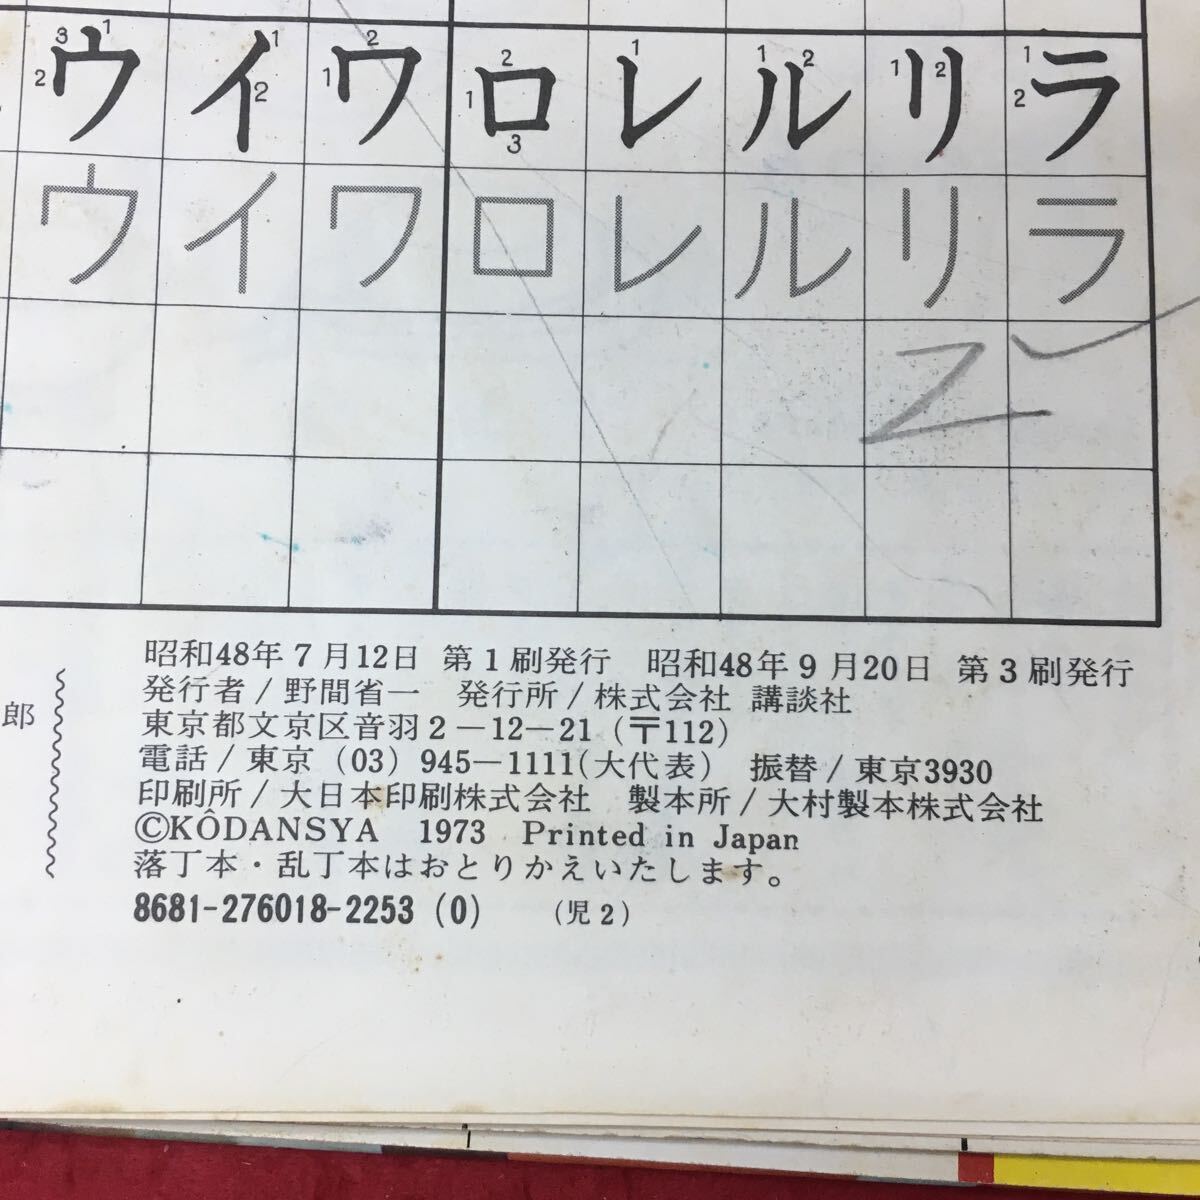 ウ イ ワ ロ レ ル リ ラ
ウ イ ワ ロ レ ル リ ラ
郎
昭和48年7月12日 第1刷発行 昭和48年9月20日 第3刷発行
発行者/野間省一 発行所/株式会社 講談社
東京都文京区音羽2-12-21(〒112)
電話/東京(03)945-1111(大代表) 振替/東京3930
印刷所/大日本印刷株式会社 製本所/大村製本株式会社
©KÔDANSYA 1973 Printed in Japan
落丁本・乱丁本はおとりかえいたします。
8681-276018-2253 (0) (児2)